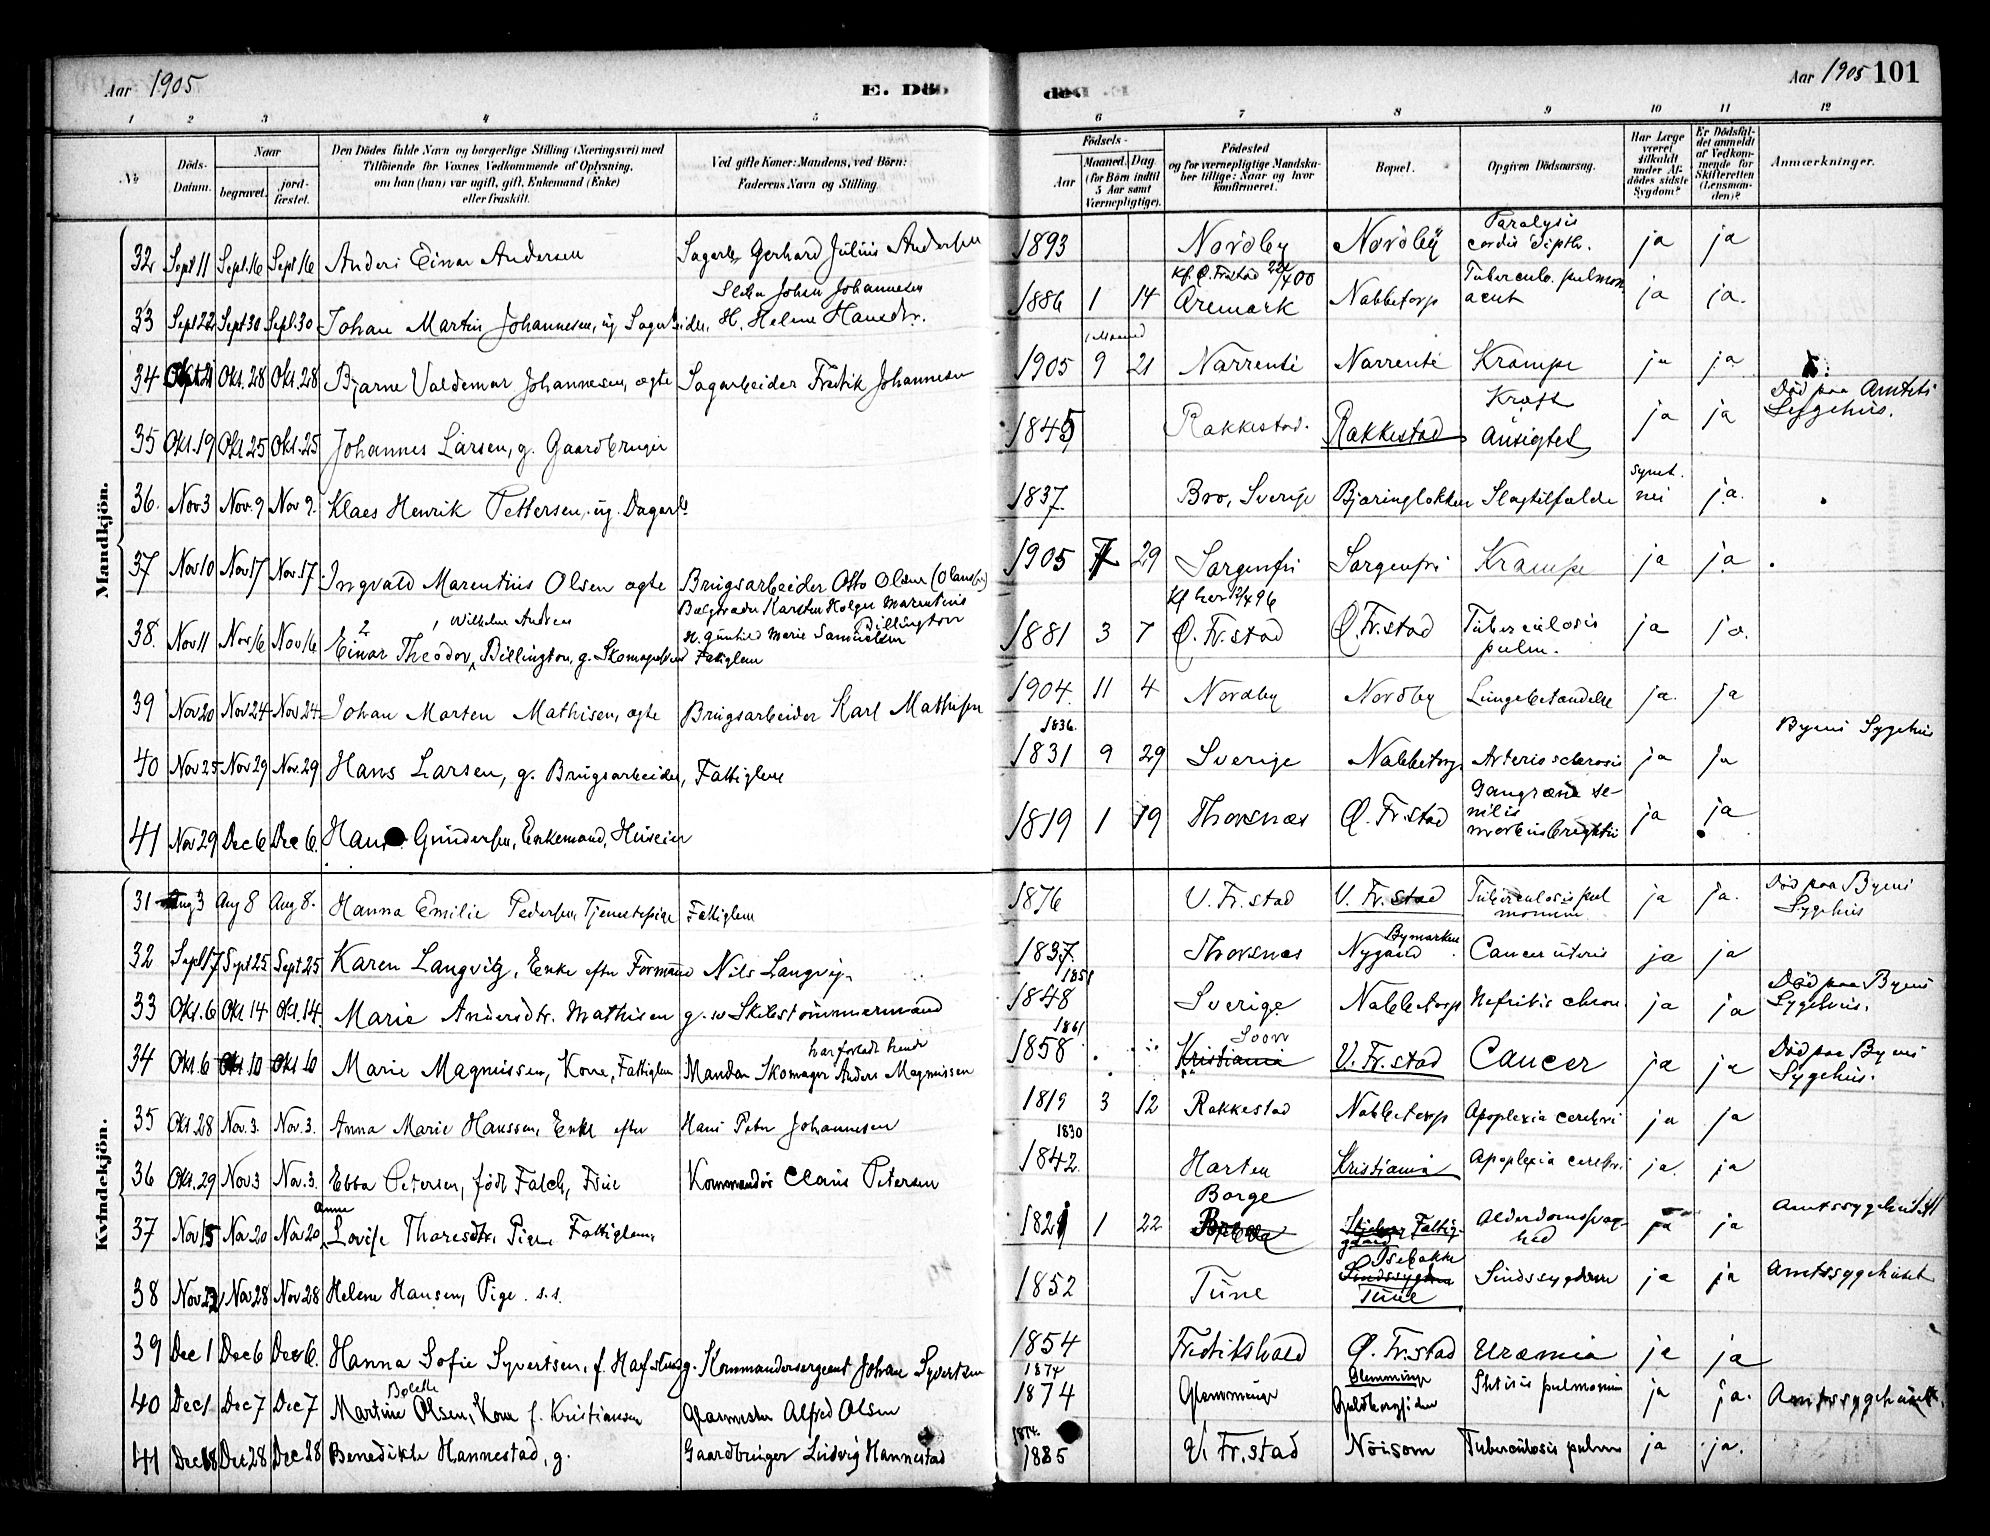 Aar 1905 E. Dö
de. Aar 1905 101
1 2 3 4 5 6 7 8 9 10 11 12
No
Döds-Datum.
Naar
begravet.
jord-fæstet.
Den Dödes fulde Navn og borgerlige Stilling (Næringsvei) med
Tilföiende for Voxnes Vedkommende af Oplysning,
om han (hun) var ugift, gift, Enkemand (Enke)
eller fraskilt.
Ved gifte Koner: Mandens, ved Börn:
Faderens Navn og Stilling.
Födsels-
Aar
Maaned. Dag
(for Börn indtil
5 Aar samt
Værnepligtige).
Födested
og for værnepligtige Mandska-
ber tillige: Naar og hvor
konfirmeret.
Bopæl.
Opgiven Dödsaarsag.
Har Læge
været
tilkaldt
under Af-
dödes sidste
Sygdom?
Er Dödsfal-
det anmeldt
af Vedkom-
mende for
Skifteretten
(Lensman-
den)?
Anmærkninger.
Mandkjön.
32 Sept 11 Sept. 16 Sept 16 Anders Einar Andersen Sagarb. Gerhard Julius Andersen 1893 Nordby Nordby Paralysis cordis dipth. ja ja
33 Sept 22 Sept 30 Sept. 30 Johan Martin Johannesen, ug. Sagarbeider, Johan Johannesen H. Helene Hansdtr. 1886 1 14 Kf. Ø. Fr.stad Aremark Nabbetorp Tuberculo. pulmon. acut ja ja.
34 Okt 21 Okt. 28 Okt. 28 Bjarne Valdemar Johannesen, ægte Sagarbeider Fredrik Johannesen 1905 9 21 Narrenté Narrenté Krampe ja ja
35 Okt. 19 Okt 25 Okt. 25 Johannes Larsen, g. Gaardbruger 1845 Rakkestad. Rakkestad Kræft Ansigtet ja ja Död paa Amtets Sygehus.
36. Nov 3 Nov. 9 Nov 9. Klaes Henrik Pettersen, ug. Dagarb. 1837. Bro, Sverige Bjæringløkken Slagtilfælde nei ja.
37 Nov 10 Nov 17 Nov. 17 Ingvald Marentius Olsen ægte Brugsarbeider Otto Olsen 1905 7 29 Sorgenfri Sorgenfri Krampe ja ja
38. Nov 11 Nov 16 Nov 16 Einar Theodor, Wilhelm Andreas Billington, g. Karsten Holger Marentius Billington H. Gunhild Marie Samuelsen Fattiglem 1881 3 7 Kf her Ø. Fr.stad Ø. Fr.stad Tuberculosis pulm. ja ja.
39 Nov 20 Nov 24 Nov 24 Johan Marten Mathisen, ægte Brugsarbeider Karl Mathisen 1904 11 4 Nordby Nordby Lungebetændelse ja. ja
40 Nov 25 Nov 29 Nov. 29 Hans Larsen, g. Brugsarbeider, Fattiglem 1836. 1831 9 29 Sverige Nabbetorp Arteriosclerosis ja ja Byens Sygehus
41 Nov 29 Dec 6 Dec 6. Hans Gundersen, Enkemand, Huseier 1819 1 19 Thorsnæs Ø. Fr.stad Gangræna senilis ja ja
Kvindekjön.
31 Aug 3 Aug 8 Aug 8. Hanna Emilie Pedersen, Tjenestepige Fattiglem 1876 V. Fr.stad V. Fr.stad Tuberculosis pulmonum ja ja. Död paa Byens Sygehus
32 Sept 17 Sept 25 Sept 25 Karen Langvig, Enke efter Formand Nils Langvig 1837. Thorsnæs Bymarken Nygaard Cancer uteris ja ja
33 Okt. 6 Okt 14 Okt. 14. Marie Andersdtr. Mathisen g. m Skibstömmermand 1851 1848 Sverige Nabbetorp Nefritis chron. ja ja Död paa Byens Sygehus.
34 Okt. 6 Okt 10 Okt 10 Marie Magnussen, Kone, Fattiglem Manden Skomager Anders Magnussen har forladt hende 1861. 1858 Kristiania V. Fr.stad Cancer ja ja Död paa Byens Sygehus.
35 Okt. 28 Nov. 3. Nov. 3. Anna Marie Hanssen, Enke efter Hans Peter Johannesen 1819 3 12 Rakkestad Nabbetorp Apoplexia cerebri ja ja
36 Okt. 29 Nov 3 Nov. 3. Ebba Petersen, född Falch, Frue Kommandör Claus Petersen 1830 1842 Horten Kristiania Apoplexia cerebri ja. ja
37 Nov 15 Nov 20 Nov 20 Anne Lovise Thoresdtr. Pige Fattiglem. 1821 1 22 Borge Fattiggaard Alderdomssvaghed ja ja Amtssygehuset
38 Nov 22 Nov 28 Nov 28 Helene Hansen, Pige. s.s. 1852 Tune Isebakke Sindssygdom Tune Sindssygdom ja ja Amtssygehuset
39 Dec 1 Dec 6 Dec 6. Hanna Sofie Syvertsen, f. g. Kommandersergeant Johan Syvertsen 1854 Fredrikshald Ø. Fr.stad Uræmia ja ja
40 Dec 1 Dec 7 Dec 7 Martine Bolette Olsen, Kone f. Kristiansen Glasmester Alfred Olsen 1874 1874 Glemminge Glemminge Phtisis pulmonum ja ja. Amtssygehuset.
41 Dec 18 Dec 28 Dec 28 Benedikte Hannestad, g. Gaardbruger Ludvig Hannestad 1874. 1885 V. Fr.stad Nöisom Tuberculosis pulm ja ja.